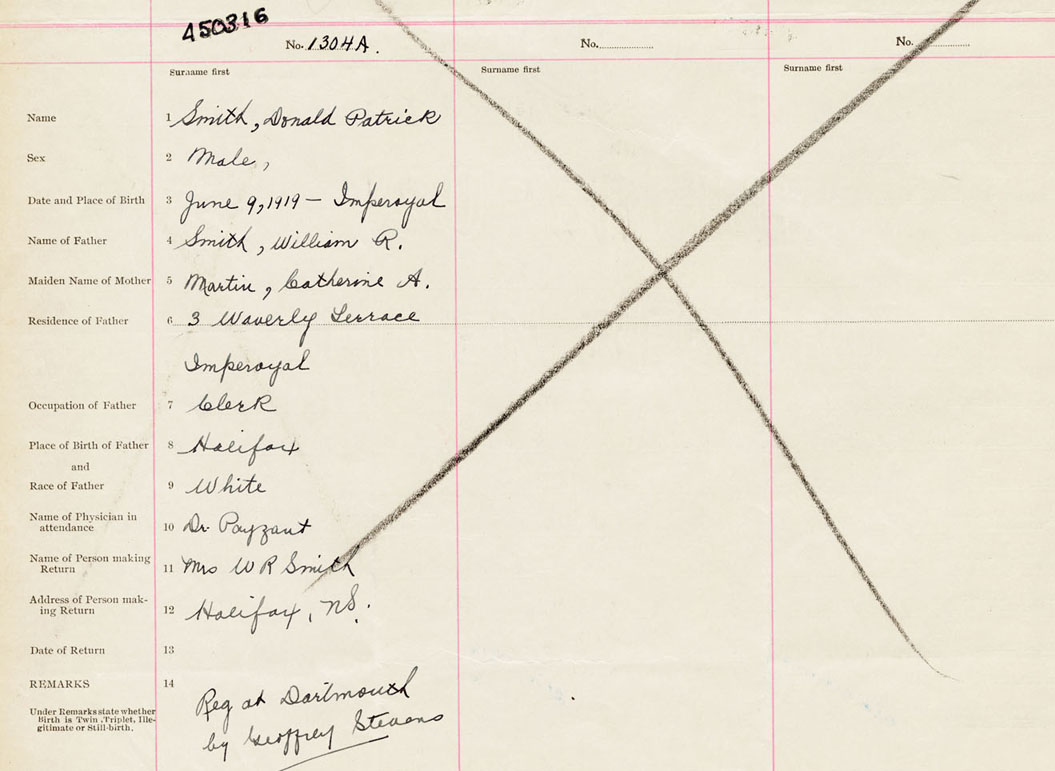 450316
No. 1304A. No. No.
Surname first Surname first Surname first
Name 1 Smith, Donald Patrick
Sex 2 Male,
Date and Place of Birth 3 June 9, 1919 - Imperoyal
Name of Father 4 Smith, William R.
Maiden Name of Mother 5 Martin, Catherine A.
Residence of Father 6 3 Waverly Terrace
Imperoyal
Occupation of Father 7 Clerk
Place of Birth of Father 8 Halifax
and
Race of Father 9 White
Name of Physician in
attendance 10 Dr. Payzant
Name of Person making
Return 11 Mrs W R Smith
Address of Person mak-
ing Return 12 Halifax, NS.
Date of Return 13
REMARKS 14
Reg at Dartmouth
Under Remarks state whether
Birth is Twin, Triplet, Ille-
gitimate or Still-birth.
by Geoffrey Stevens